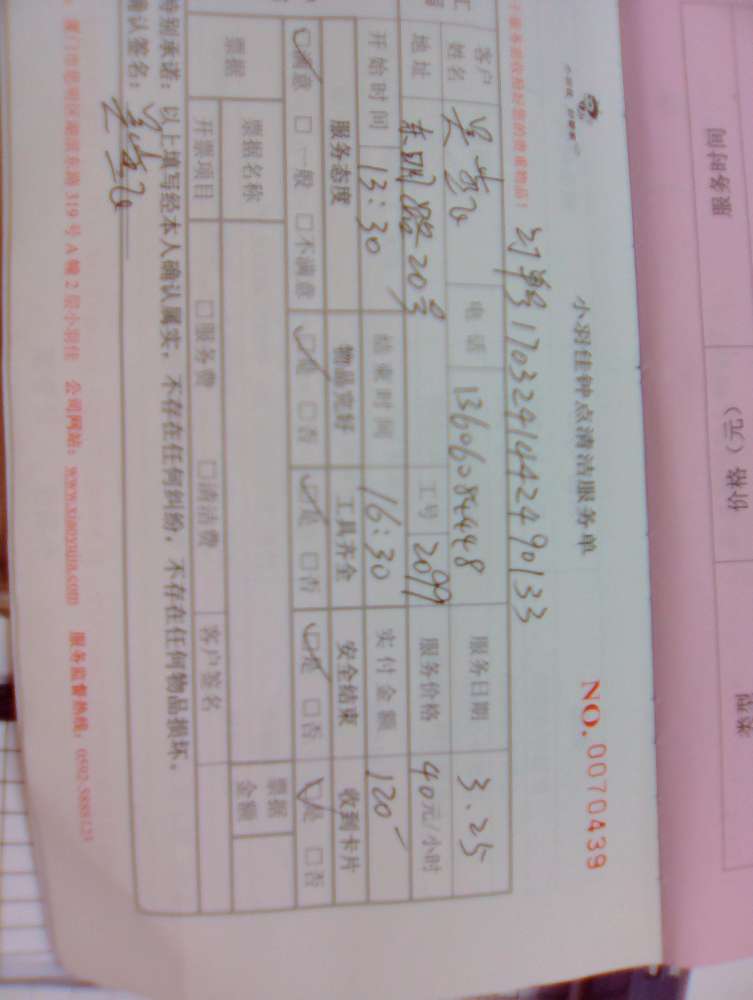 服务时间 价格（元）
小羽佳钟点清洁服务单 NO.0070439
订单号1703241442490133
客户姓名 电话 13606084448 服务日期 3.25
地址 东明路20号 工号 2099 服务价格 40元/小时
开始时间 13:30 结束时间 16:30 实付金额 120
服务态度 物品完好 工具齐全 安全结束 收到卡片
满意 一般 不满意 是 否 是 否 是 否 是 否
票据 票据名称 票据金额
开票项目 服务费 清洁费 客户签名
特别承诺：以上填写经本人确认属实，不存在任何纠纷，不存在任何物品损坏。
确认签名：
厦门市思明区湖滨东路319号A幢2层小羽佳 公司网站：www.xiaoyujia.com 服务监督热线：0592 5888123